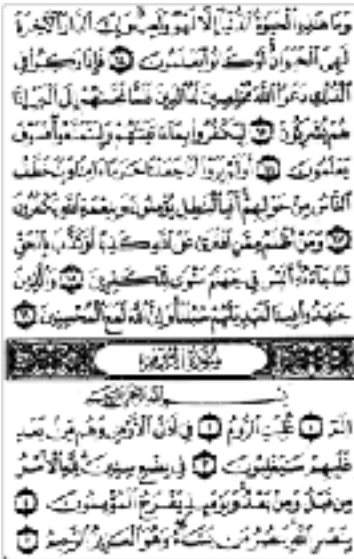 وَمَا هَٰذِهِ ٱلْحَيَوٰةُ ٱلدُّنْيَآ إِلَّا لَهْوٌ وَلَعِبٌ وَإِنَّ ٱلدَّارَ ٱلْءَاخِرَةَ
لَهِىَ ٱلْحَيَوَانُ لَوْ كَانُوا۟ يَعْلَمُونَ ٦٤ فَإِذَا رَكِبُوا۟ فِى
ٱلْفُلْكِ دَعَوُا۟ ٱللَّهَ مُخْلِصِينَ لَهُ ٱلدِّينَ فَلَمَّا نَجَّىٰهُمْ إِلَى ٱلْبَرِّ إِذَا
هُمْ يُشْرِكُونَ ٦٥ لِيَكْفُرُوا۟ بِمَآ ءَاتَيْنَٰهُمْ وَلِيَتَمَتَّعُوا۟ فَسَوْفَ
يَعْلَمُونَ ٦٦ أَوَلَمْ يَرَوْا۟ أَنَّا جَعَلْنَا حَرَمًا ءَامِنًا وَيُتَخَطَّفُ
ٱلنَّاسُ مِنْ حَوْلِهِمْ أَفَبِٱلْبَٰطِلِ يُؤْمِنُونَ وَبِنِعْمَةِ ٱللَّهِ يَكْفُرُونَ
٦٧ وَمَنْ أَظْلَمُ مِمَّنِ ٱفْتَرَىٰ عَلَى ٱللَّهِ كَذِبًا أَوْ كَذَّبَ بِٱلْحَقِّ
لَمَّا جَآءَهُۥٓ أَلَيْسَ فِى جَهَنَّمَ مَثْوًى لِّلْكَٰفِرِينَ ٦٨ وَٱلَّذِينَ
جَٰهَدُوا۟ فِينَا لَنَهْدِيَنَّهُمْ سُبُلَنَا وَإِنَّ ٱللَّهَ لَمَعَ ٱلْمُحْسِنِينَ ٦٩
سُورَةُ ٱلرُّومِ
بِسْمِ ٱللَّهِ ٱلرَّحْمَٰنِ ٱلرَّحِيمِ
الٓمٓ ١ غُلِبَتِ ٱلرُّومُ ٢ فِىٓ أَدْنَى ٱلْأَرْضِ وَهُم مِّنۢ بَعْدِ
غَلَبِهِمْ سَيَغْلِبُونَ ٣ فِى بِضْعِ سِنِينَ لِلَّهِ ٱلْأَمْرُ
مِن قَبْلُ وَمِنۢ بَعْدُ وَيَوْمَئِذٍ يَفْرَحُ ٱلْمُؤْمِنُونَ ٤
بِنَصْرِ ٱللَّهِ يَنصُرُ مَن يَشَآءُ وَهُوَ ٱلْعَزِيزُ ٱلرَّحِيمُ ٥